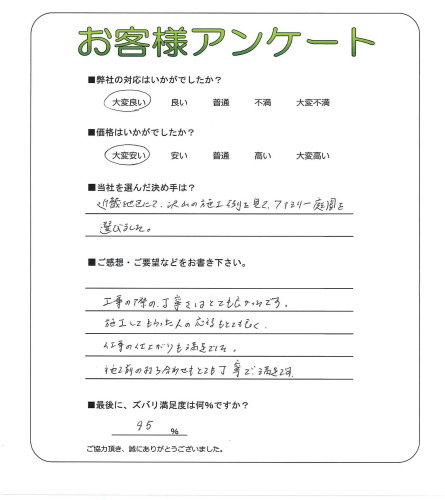 お客様アンケート
■弊社の対応はいかがでしたか?
大変良い 良い 普通 不満 大変不満
■価格はいかがでしたか?
大変安い 安い 普通 高い 大変高い
■当社を選んだ決め手は?
近畿地区にて、沢山の施工例を見て、ファミリー庭園を
選びました。
■ご感想・ご要望などをお書き下さい。
工事の際の、丁寧さはとても良かったです。
施工してもらった人の応待もとても良く、
仕事の仕上がりも満足でした。
の打ち合わせもとても丁寧で、満足です。
■最後に、ズバリ満足度は何%ですか?
95 %
ご協力頂き、誠にありがとうございました。